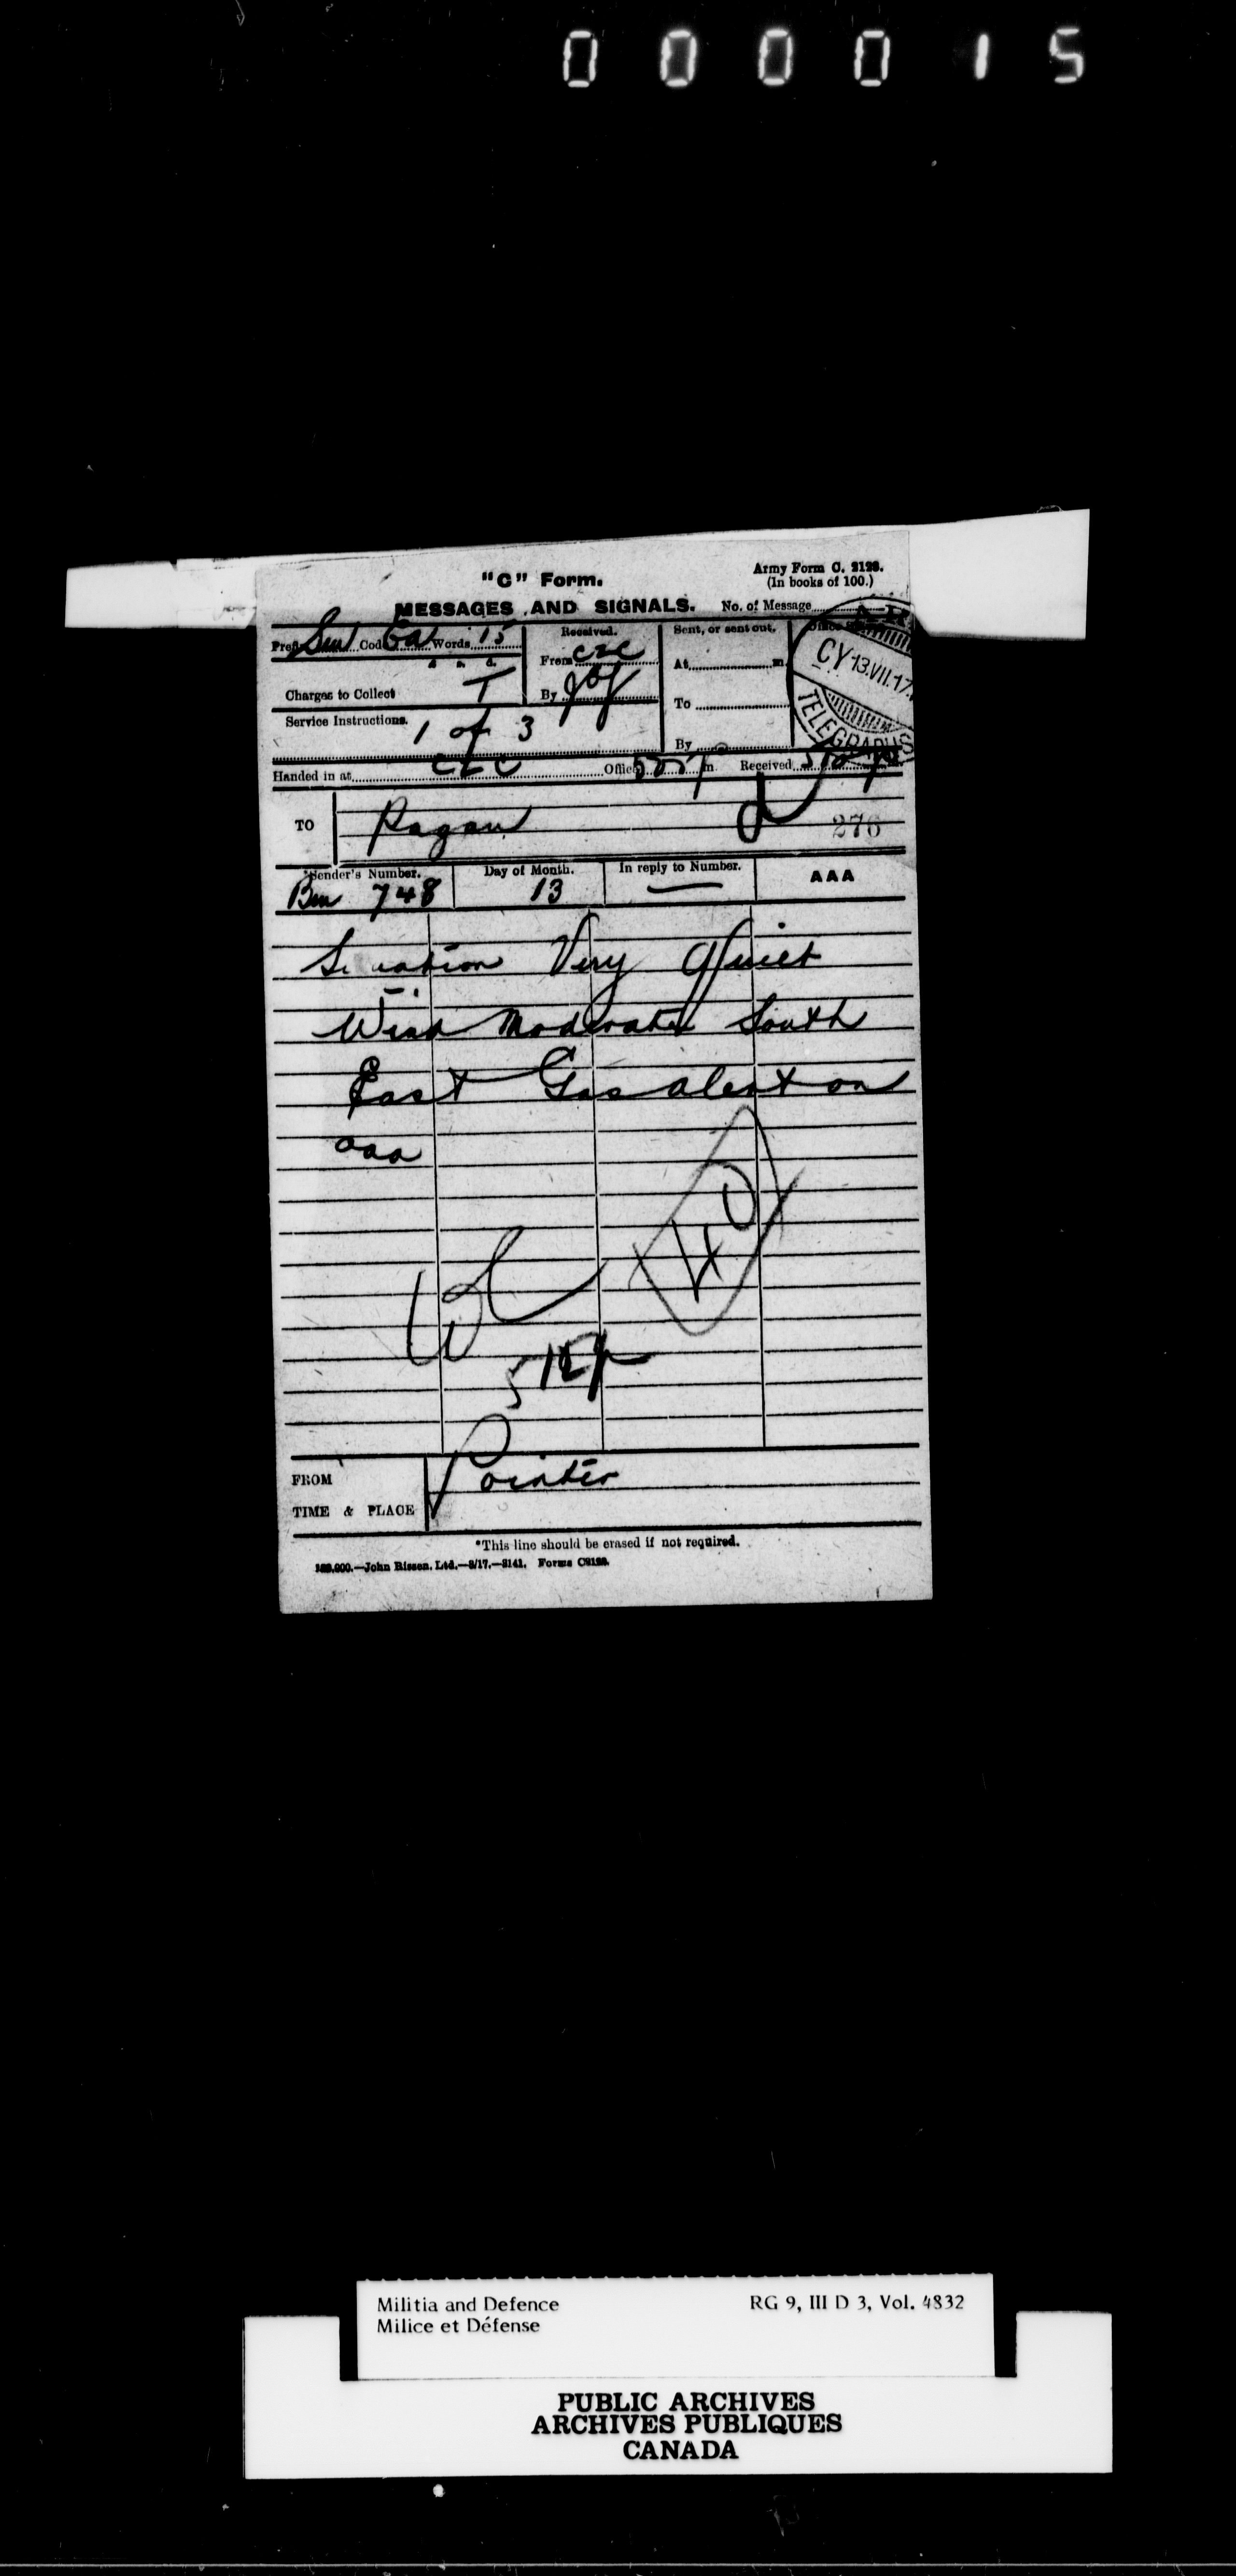 000015
"C" Form.
Army Form C. 2123.
(In books of 100.)
MESSAGES AND SIGNALS. No. of Message
Prefix Sm Code Ga Words 15
Received. From CZC By
Sent, or sent out. At m. To By
Office Stamp
CY 13.VII.17
TELEGRAPHS
£ s. d.
Charges to Collect
Service Instructions. 1 of 3
Handed in at CZC Office m. Received
TO Pagan
276
*Sender's Number. Bm 748
Day of Month. 13
In reply to Number. —
AAA
Situation Very Quiet
Wind Moderate South
East Gas alert on
aaa
FROM Pointer
TIME & PLACE
*This line should be erased if not required.
Militia and Defence
Milice et Défense
RG 9, III D 3, Vol. 4832
PUBLIC ARCHIVES
ARCHIVES PUBLIQUES
CANADA